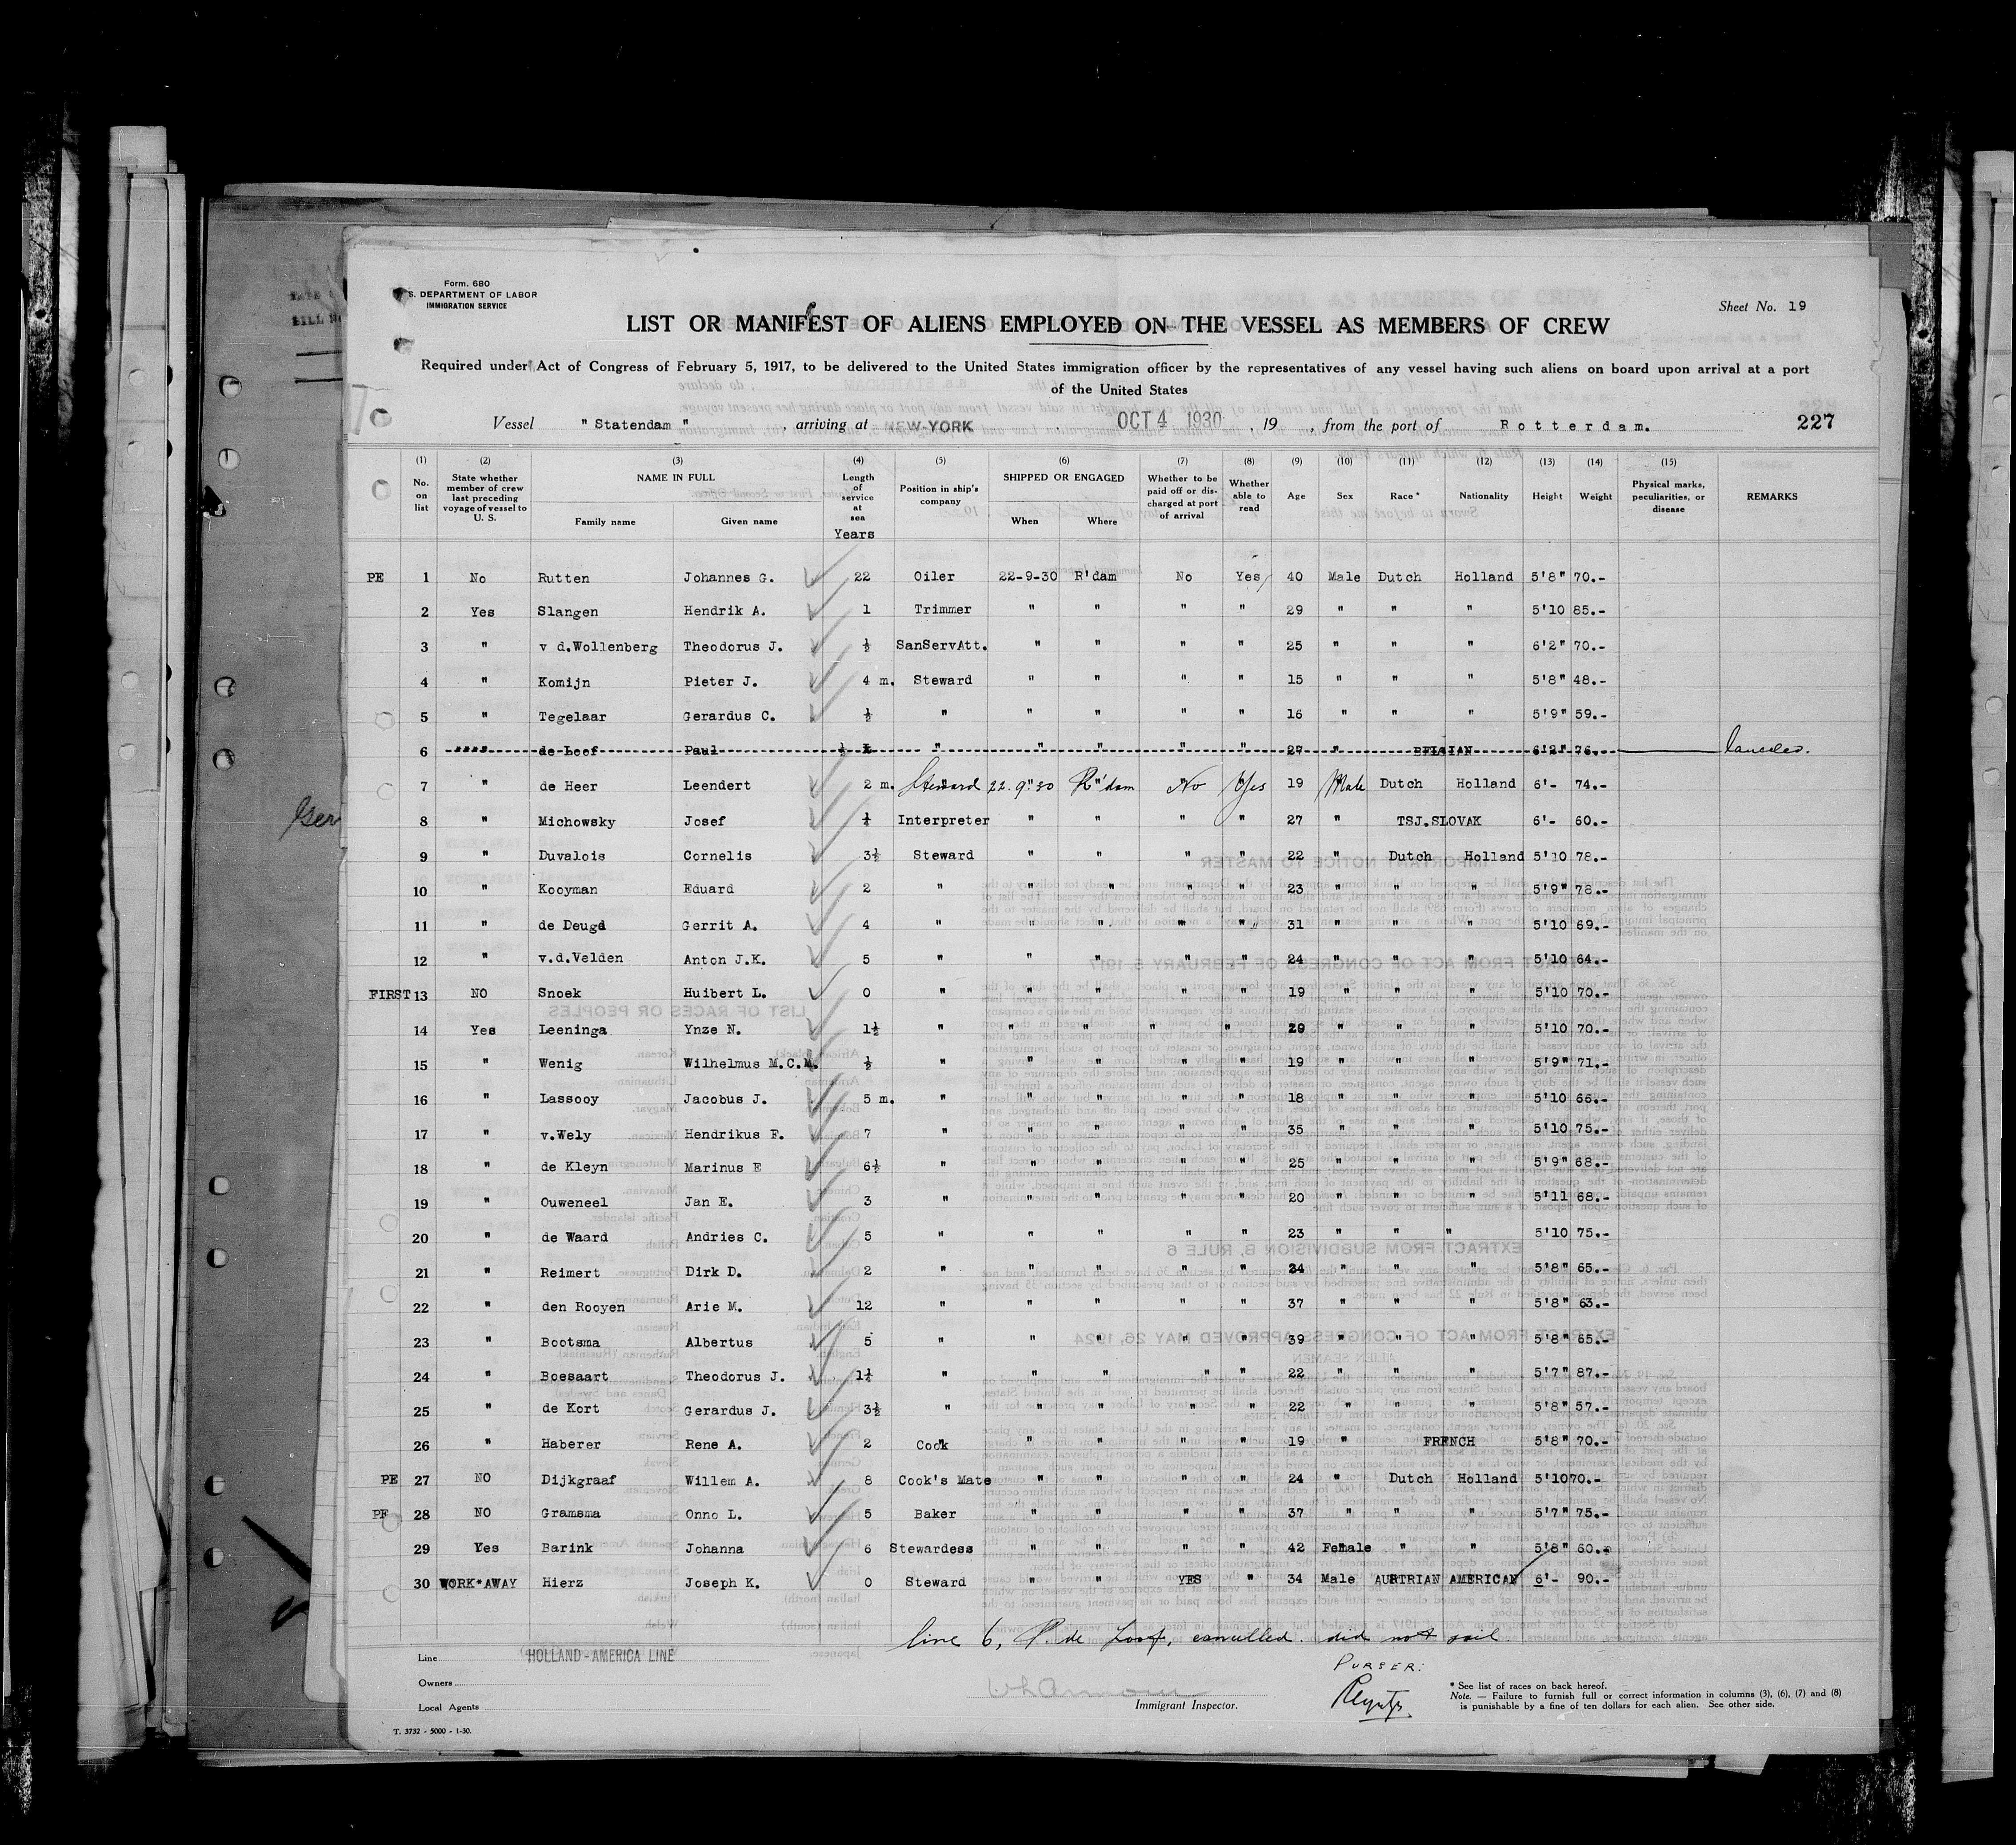 Form. 680
S. DEPARTMENT OF LABOR
IMMIGRATION SERVICE
Sheet No. 19
LIST OR MANIFEST OF ALIENS EMPLOYED ON THE VESSEL AS MEMBERS OF CREW
Required under Act of Congress of February 5, 1917, to be delivered to the United States immigration officer by the representatives of any vessel having such aliens on board upon arrival at a port
of the United States
Vessel " Statendam ", arriving at NEW-YORK OCT 4 1930, 19 , from the port of Rotterdam. 227
(1) No. on list (2) State whether member of crew last preceding voyage of vessel to U. S. (3) NAME IN FULL Family name Given name (4) Length of service at sea Years (5) Position in ship's company (6) SHIPPED OR ENGAGED When Where (7) Whether to be paid off or discharged at port of arrival (8) Whether able to read (9) Age (10) Sex (11) Race * (12) Nationality (13) Height (14) Weight (15) Physical marks, peculiarities, or disease REMARKS
PE 1 No Rutten Johannes G. 22 Oiler 22-9-30 R'dam No Yes 40 Male Dutch Holland 5'8" 70.-
2 Yes Slangen Hendrik A. 1 Trimmer " " " " 29 " " " 5'10 85.-
3 " v d.Wollenberg Theodorus J. ½ SanServAtt. " " " " 25 " " " 6'2" 70.-
4 " Komijn Pieter J. 4 m. Steward " " " " 15 " " " 5'8" 48.-
5 " Tegelaar Gerardus C. ½ " " " " " 16 " " " 5'9" 59.-
6 """" de Loof Paul ½ " " " " " 27 " BELGIAN 6'2" 76.- Canceled.
7 " de Heer Leendert 2 m. Steward 22.9"30 R'dam No Yes 19 Male Dutch Holland 6'- 74.-
8 " Michowsky Josef Interpreter " " " " 27 " TSJ.SLOVAK 6'- 60.-
9 " Duvalois Cornelis 3½ Steward " " " " 22 " Dutch Holland 5'10 78.-
10 " Kooyman Eduard 2 " " " " " 23 " " " 5'9" 78.-
11 " de Deugd Gerrit A. 4 " " " " " 31 " " " 5'10 69.-
12 " v.d.Velden Anton J.K. 5 " " " " " 24 " " " 5'10 64.-
FIRST 13 NO Snoek Huibert L. 0 " " " " " 19 " " " 5'10 70.-
14 Yes Leeninga Ynze N. 1½ " " " " " 29 " " " 5'10 70.-
15 " Wenig Wilhelmus M.C.M. ½ " " " " " 19 " " " 5'9" 71.-
16 " Lassooy Jacobus J. 5 m. " " " " " 18 " " " 5'10 66.-
17 " v.Wely Hendrikus F. 7 " " " " " 35 " " " 5'10 75.-
18 " de Kleyn Marinus E 6½ " " " " " 25 " " " 5'9" 68.-
19 " Ouweneel Jan E. 3 " " " " " 20 " " " 5'11 68.-
20 " de Waard Andries C. 5 " " " " " 23 " " " 5'10 75.-
21 " Reimert Dirk D. 2 " " " " " 24 " " " 5'8" 65.-
22 " den Rooyen Arie M. 12 " " " " " 37 " " " 5'8" 63.-
23 " Bootsma Albertus 5 " " " " " 39 " " " 5'8" 65.-
24 " Boesaart Theodorus J. " " " " " 22 " " " 5'7" 87.-
25 " de Kort Gerardus J. 3½ " " " " " 22 " " " 5'8" 57.-
26 " Haberer Rene A. 2 Cook " " " " 19 " FRENCH 5'8" 70.-
PE 27 NO Dijkgraaf Willem A. 8 Cook's Mate " " " " 24 " Dutch Holland 5'10 70.-
PE 28 NO Gramsma Onno L. 5 Baker " " " " 37 " " " 5'7" 75.-
29 Yes Barink Johanna 6 Stewardess " " " " 42 Female " " 5'8" 60.-
30 WORK*AWAY Hierz Joseph K. 0 Steward " " YES " 34 Male AUSTRIAN AMERICAN 6'- 90.-
line 6, P. de Loof, cancelled. did not sail
Line HOLLAND-AMERICA LINE
Owners
Local Agents
Immigrant Inspector.
PURSER:
* See list of races on back hereof.
Note. — Failure to furnish full or correct information in columns (3), (6), (7) and (8)
is punishable by a fine of ten dollars for each alien. See other side.
T. 3732 - 5000 - 1-30.